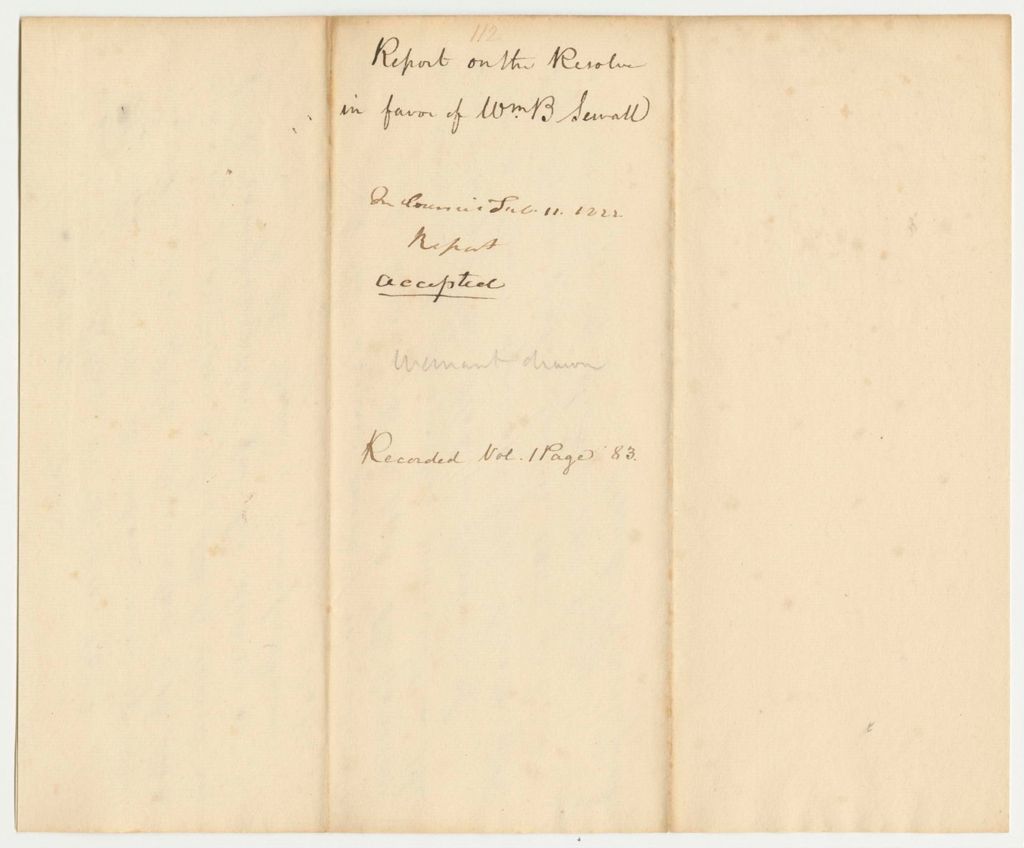 112
Report on the Resolve
in favor of Wm B Sewall
In Council Feb. 11. 1822
Report
accepted
Warrant drawn
Recorded Vol. 1 Page 83.